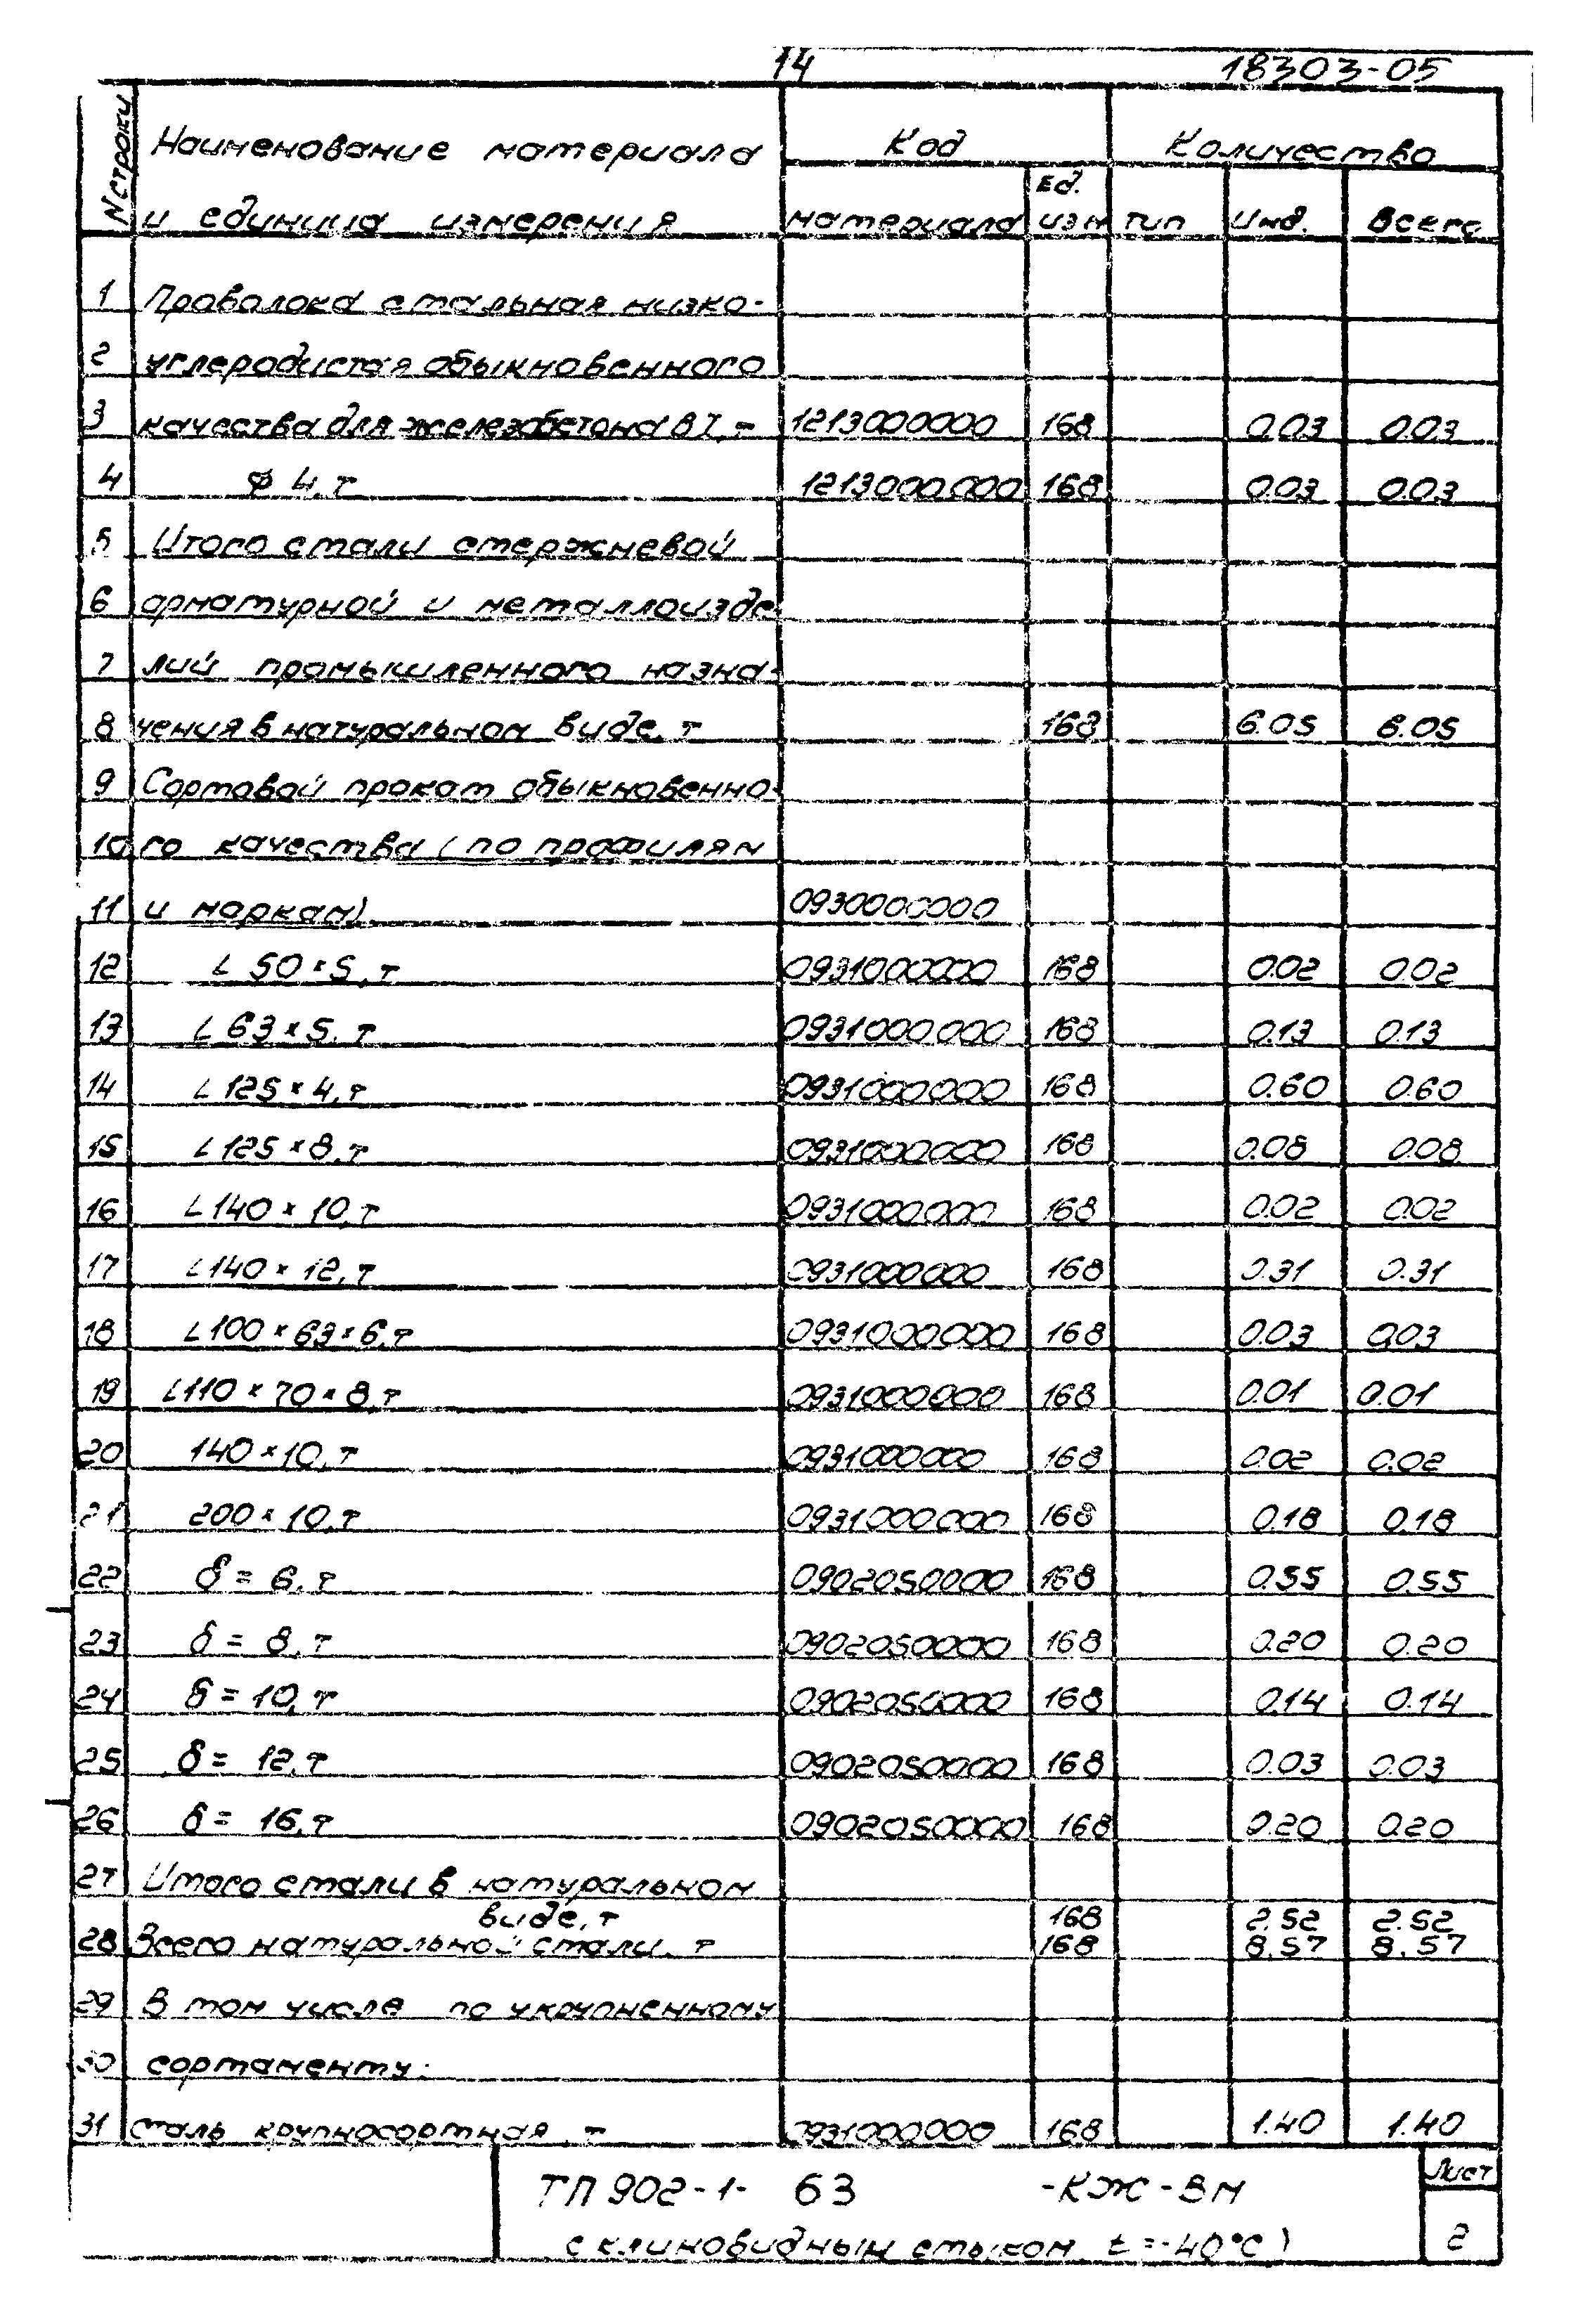 14 18303-05
N строки Наименование материала Код Количество
и единица измерения материала Ед. изм тип Инд. Всего
1 Проволока стальная низко-
2 углеродистая обыкновенного
3 качества для железобетона ВI, т 1213000000 168 0.03 0.03
4 ф 4, т 1213000000 168 0.03 0.03
5 Итого стали стержневой
6 арматурной и металлоизде-
7 лий промышленного назна-
8 чения в натуральном виде, т 168 6.05 6.05
9 Сортовой прокат обыкновенно-
10 го качества (по профилям
11 и маркам) 0930000000
12 L 50×5, т 0931000000 168 0.02 0.02
13 L 63×5, т 0931000000 168 0.13 0.13
14 L 125×4, т 0931000000 168 0.60 0.60
15 L 125×8, т 0931000000 168 0.08 0.08
16 L 140×10, т 0931000000 168 0.02 0.02
17 L 140×12, т 0931000000 168 0.31 0.31
18 L 100×63×6, т 0931000000 168 0.03 0.03
19 L 110×70×8, т 0931000000 168 0.01 0.01
20 140×10, т 0931000000 168 0.02 0.02
21 200×10, т 0931000000 168 0.18 0.18
22 δ = 6, т 0902050000 168 0.55 0.55
23 δ = 8, т 0902050000 168 0.20 0.20
24 δ = 10, т 0902050000 168 0.14 0.14
25 δ = 12, т 0902050000 168 0.03 0.03
26 δ = 16, т 0902050000 168 0.20 0.20
27 Итого стали в натуральном
виде, т 168 2.52 2.52
28 Всего натуральной стали, т 168 8.57 8.57
29 В том числе по укрупненному
30 сортаменту:
31 сталь крупносортная, т 0931000000 168 1.40 1.40
ТП 902-1- 63 -КЖ-ВМ Лист
с клиновидным стыком t=-40°С) 2